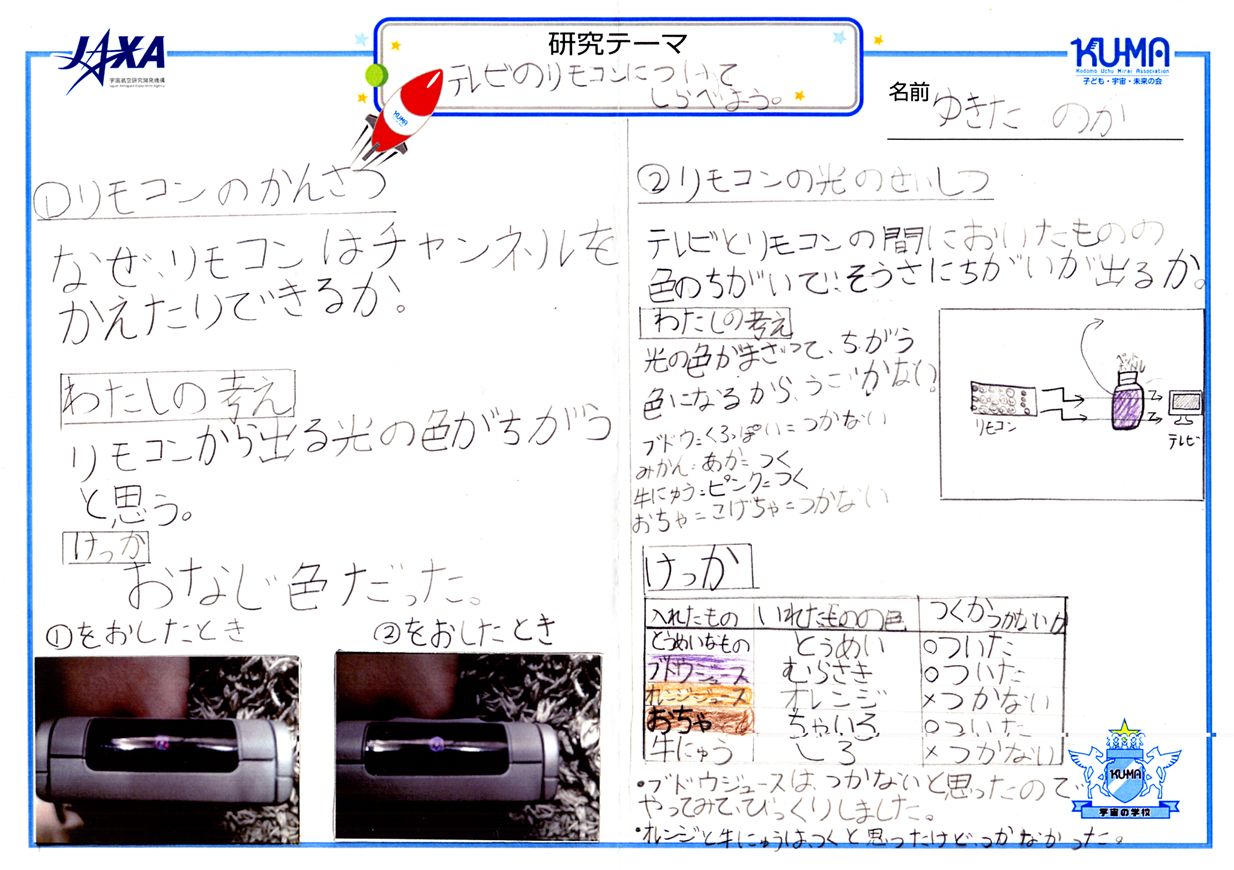 JAXA
宇宙航空研究開発機構
Japan Aerospace Exploration Agency
研究テーマ
テレビのリモコンについて
しらべよう。
KUMA
KUMA
Kodomo Uchu Mirai Association
子ども・宇宙・未来の会
名前 ゆきた のか
①リモコンのかんさつ
なぜ、リモコンはチャンネルを
かえたりできるか。
わたしの考え
リモコンから出る光の色がちがう
と思う。
けっか
おなじ色だった。
①をおしたとき
②をおしたとき
②リモコンの光のせいしつ
テレビとリモコンの間においたものの
色のちがいで、そうさにちがいが出るか。
わたしの考え
光の色がまざって、ちがう
色になるから、うごかない。
ブドウ=くろっぽい=つかない
みかん=あか=つく
牛にゅう=ピンク=つく
おちゃ=こげちゃ=つかない
ペットボトル
リモコン
テレビ
けっか
入れたもの いれたものの色 つくかつかないか
とうめいなもの とうめい ○ついた
ブドウジュース むらさき ○ついた
オレンジジュース オレンジ ×つかない
おちゃ ちゃいろ ○ついた
牛にゅう しろ ×つかない
・ブドウジュースは、つかないと思ったので
やってみて、びっくりしました。
・オレンジと牛にゅうは、つくと思ったけど、つかなかった。
KUMA
宇宙の学校